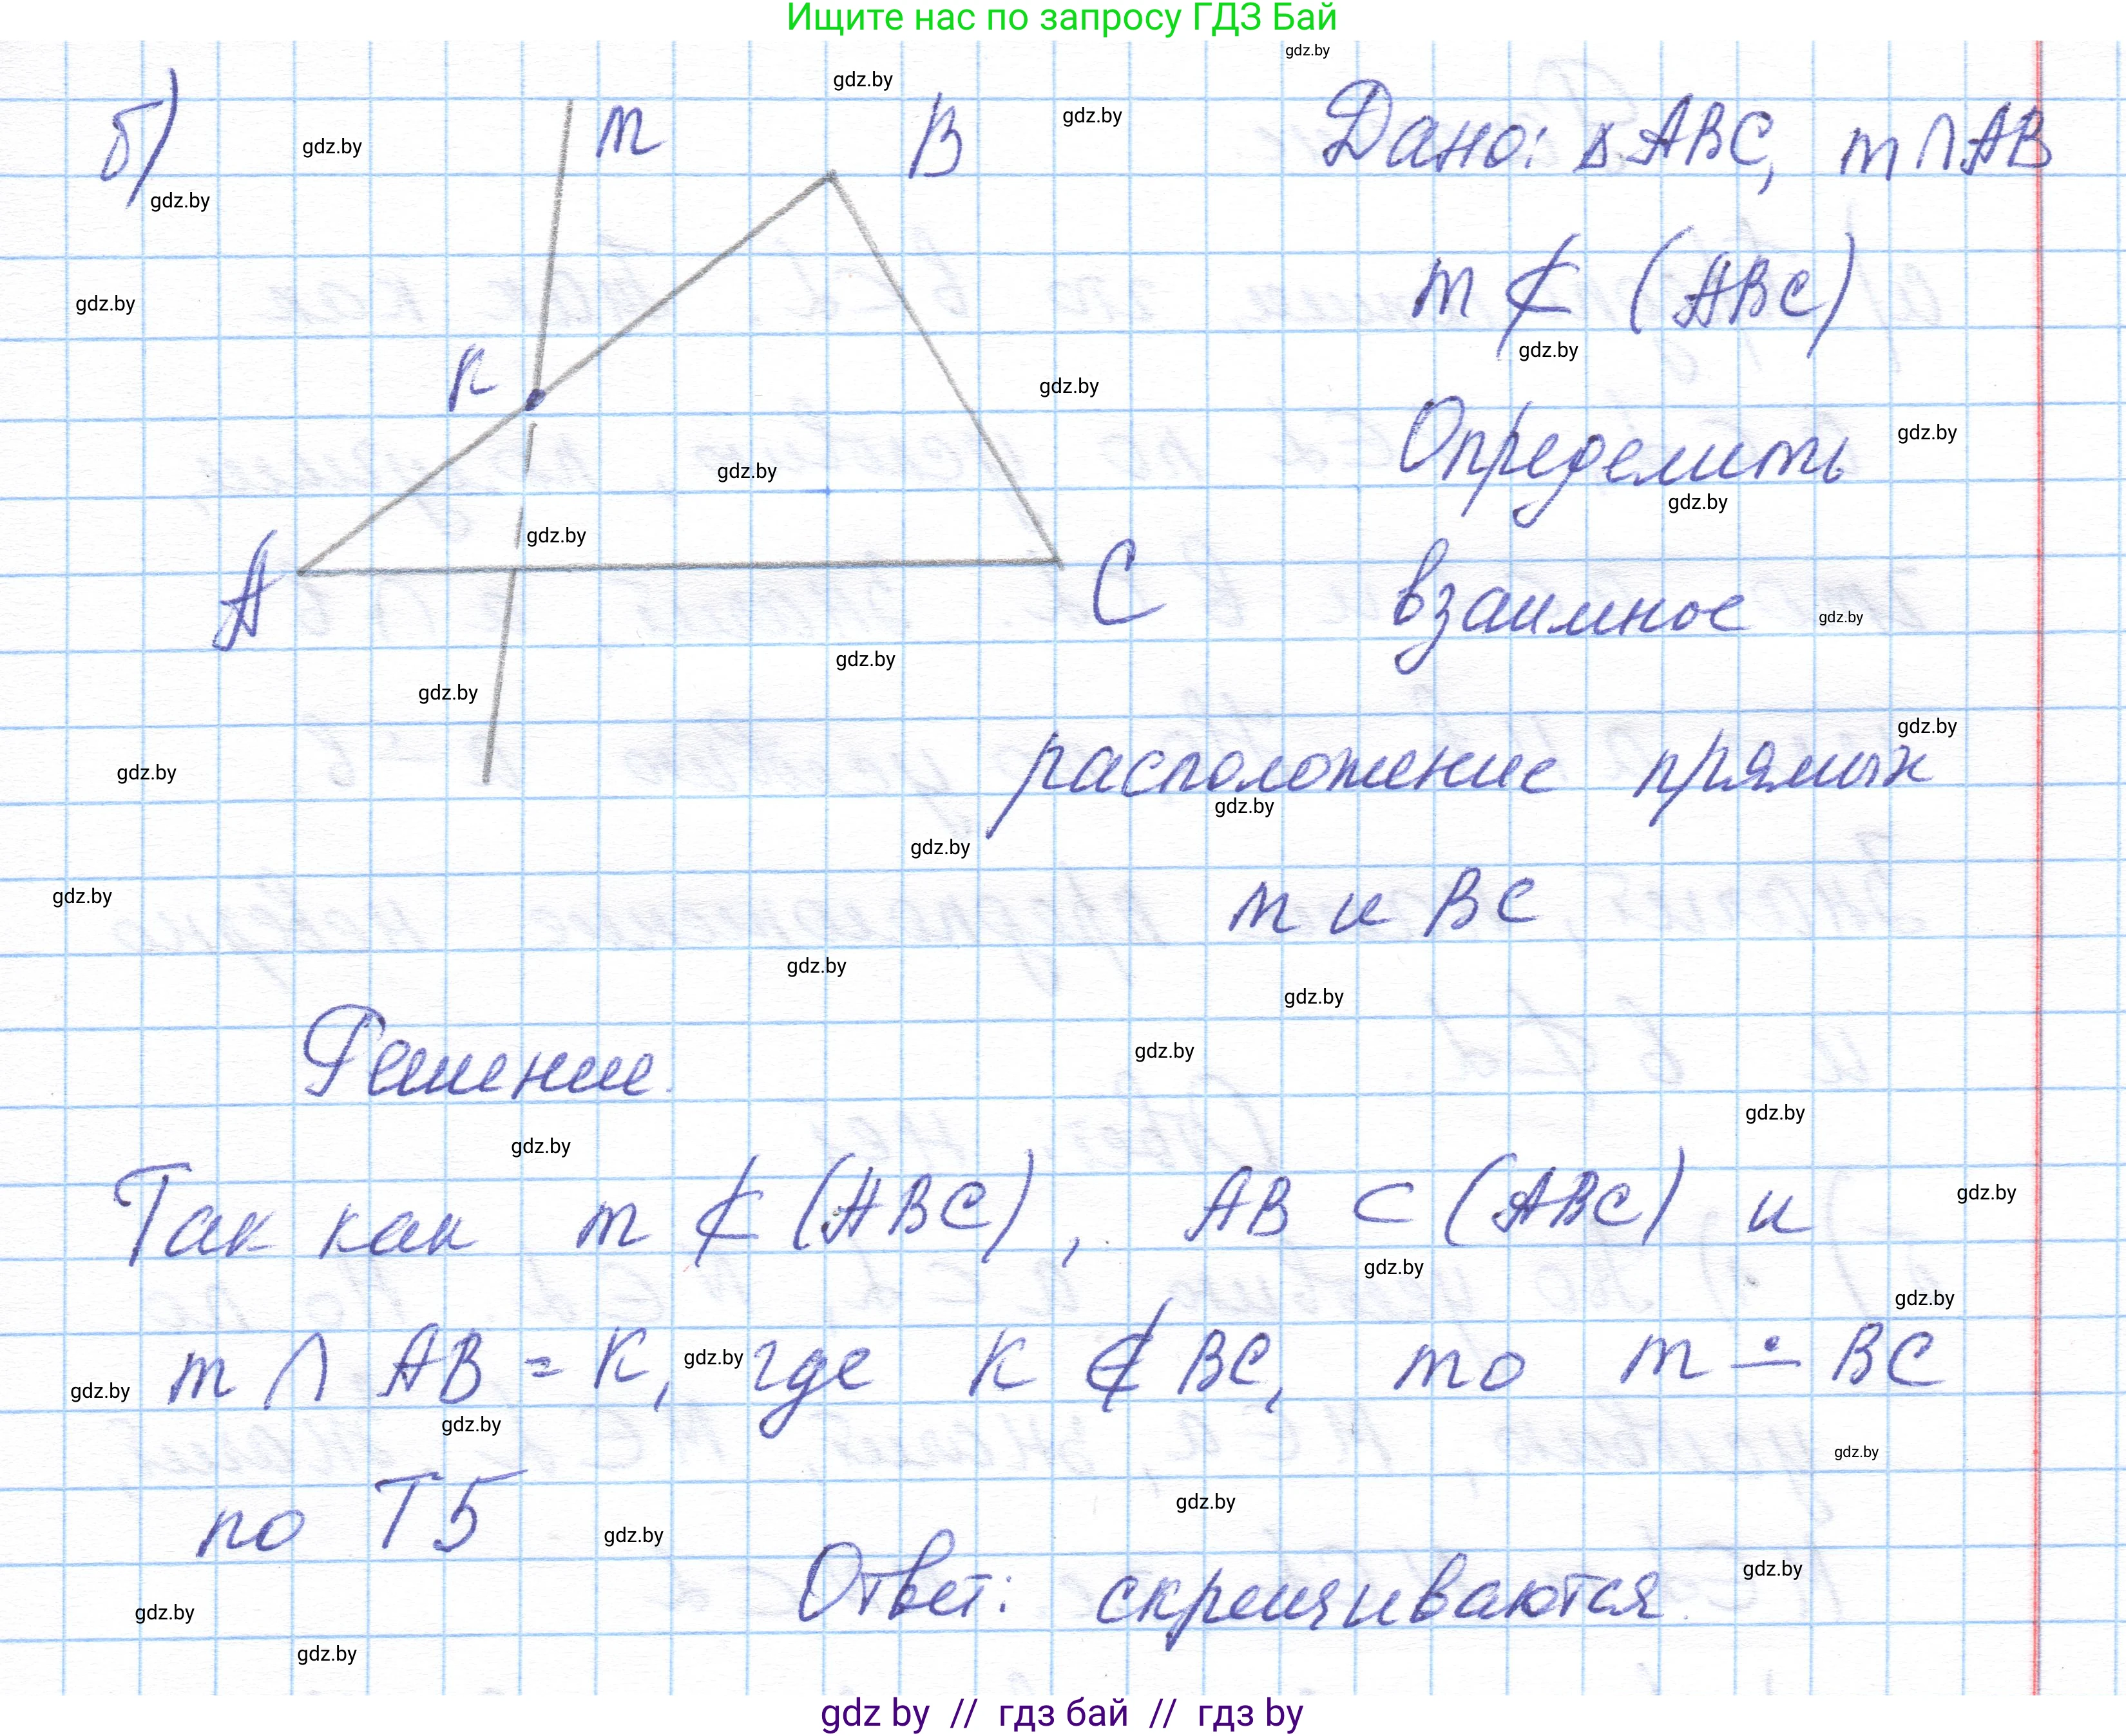 Ищите нас по запросу ГДЗ Бай
б)
m
B
Дано: ΔABC, m∩AB
m ⊄ (ABC)
K
Определить
A
C
взаимное
расположение прямых
m и BC
Решение.
Так как m ⊄ (ABC), AB ⊂ (ABC) и
m ∩ AB = K, где K ∉ BC, то m ∸ BC
по T5
Ответ: скрещиваются.
gdz by // гдз бай // гдз by